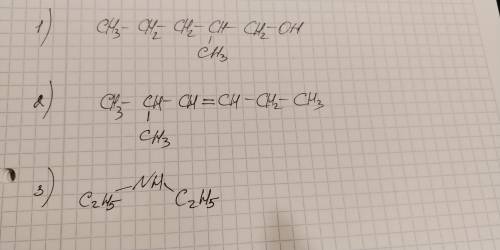 1) CH3 - CH2 - CH2 - CH - CH2 - OH
CH3
2) CH3 - CH - CH = CH - CH2 - CH3
CH3
3) C2H5 - NH - C2H5